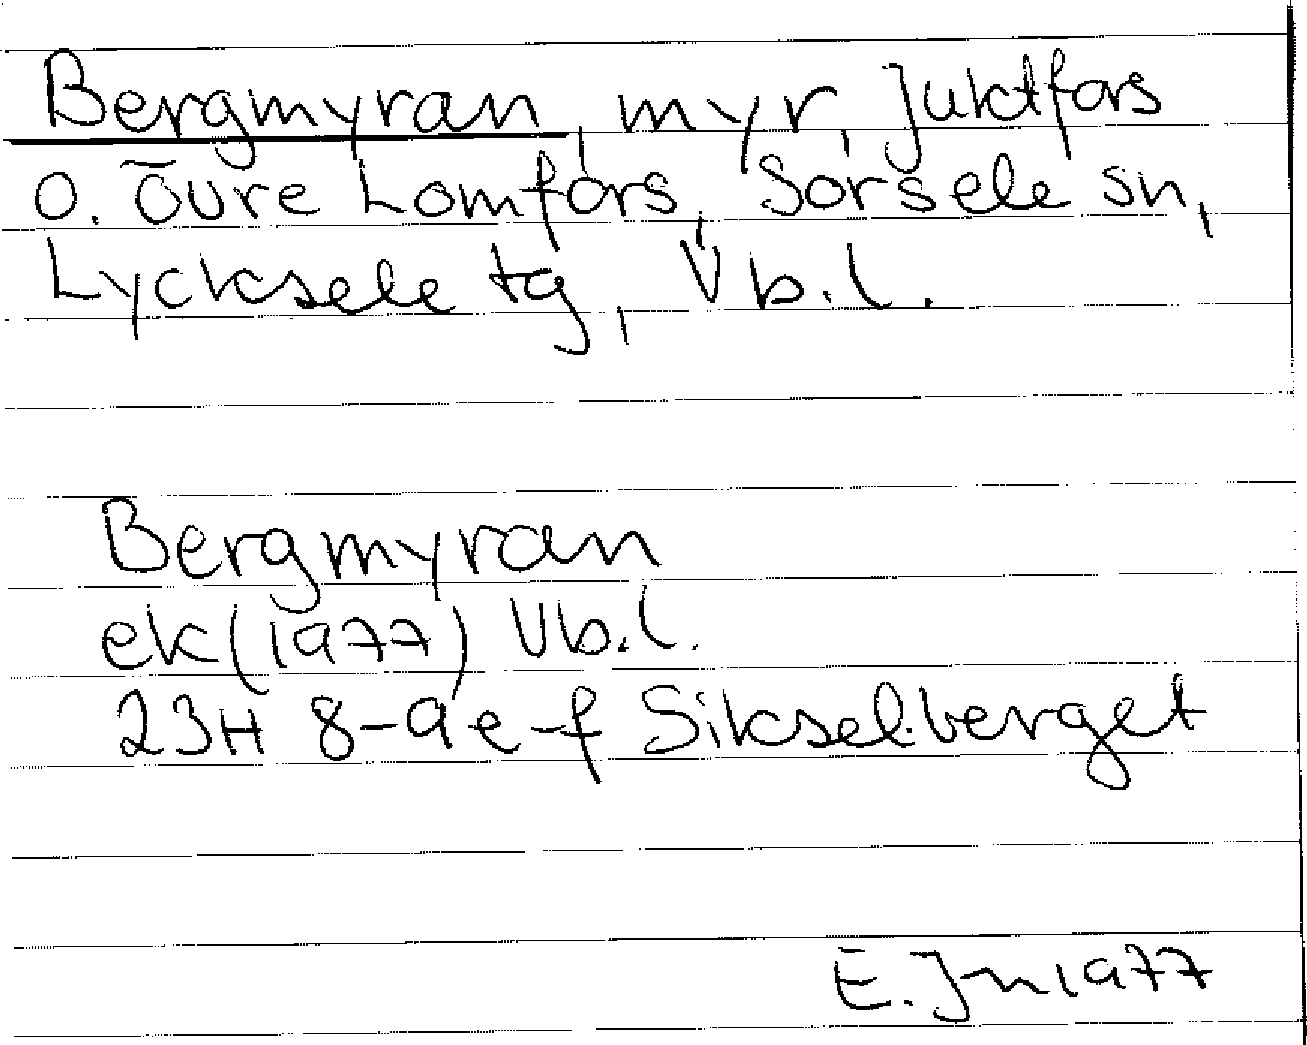 Bergmyran, myr, Juktfors
o. Övre Lomfors, Sorsele sn,
Lycksele tg, Vb.l.
Bergmyran
ek (1977) Vb.l.
23H 8-9 e-f Sikselberget
E. Jn 1977